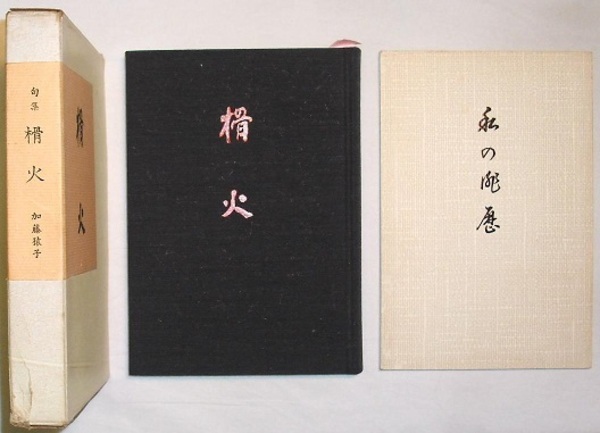 句集
榾火
加藤猿子
榾火
榾火
私の俳歴